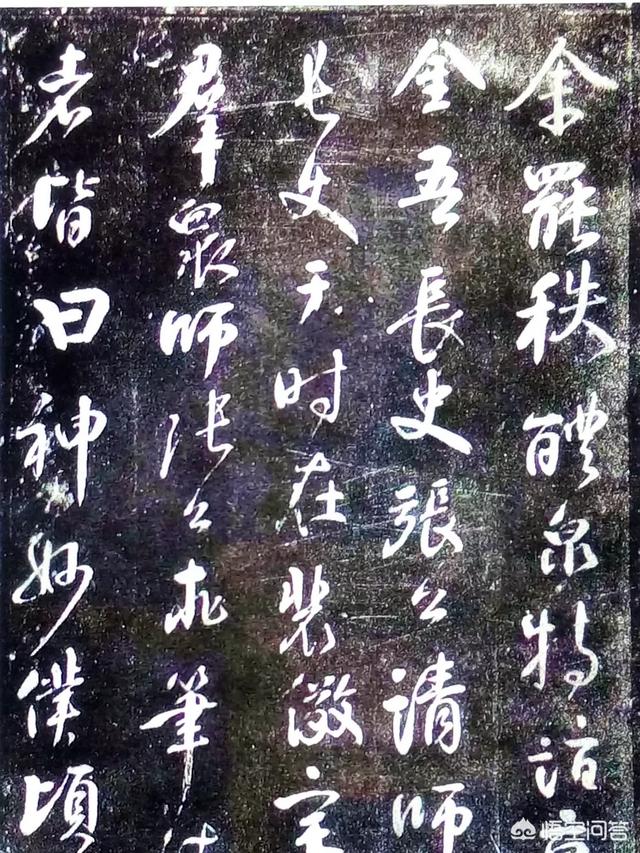 余罷秩醴泉特詣
金吾長史張公請師
长史于时在裴儆宅
羣眾师张公求筆法
者皆曰神妙僕頃
悟空问答